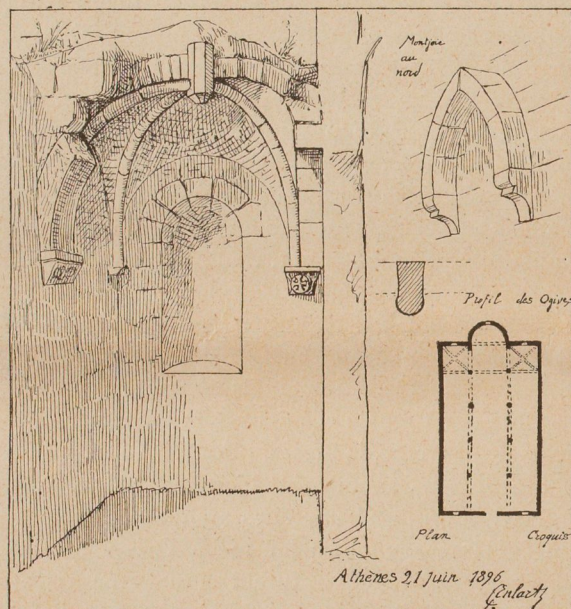 au
nord
Profil des Ogives
Plan Croquis
Athènes 21 Juin 1896
Enlart